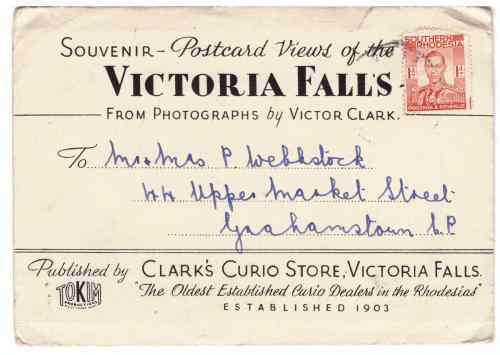 Souvenir - Postcard Views of the
VICTORIA FALLS
From Photographs by Victor Clark.
SOUTHERN
RHODESIA
1D 1D
POSTAGE & REVENUE
To Mr & Mrs P. Webbstock
44 Upper Market Street
Grahamstown C.P
Published by Clark's Curio Store, Victoria Falls.
"The Oldest Established Curio Dealers in the Rhodesias"
ESTABLISHED 1903
TOKIM
PRODUCTIONS